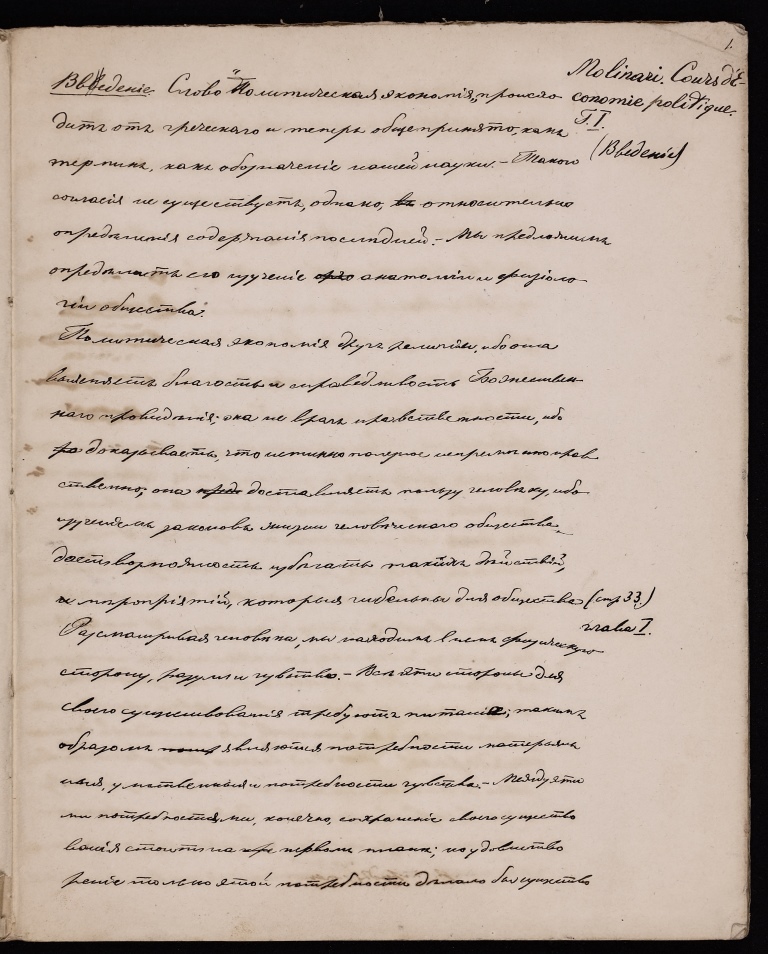 1.
Введеніе. Слово "Политическая экономія" происхо
Molinari. Cours d'E-
conomie politique.
T. I.
(Введеніе)
дитъ отъ греческаго и теперь общепринято, какъ
терминъ, какъ обозначеніе нашей науки. – Такого
согласія не существуетъ, однако, въ относительно
опредѣленія содержанія послѣдней. – Мы предложимъ
опредѣлить его изученіе анатоміи и физіоло
гіи общества.
Политическая экономія другъ религіи, ибо она
выясняетъ благость и справедливость Божествен
наго провидѣнія; она не врагъ нравственности, ибо
доказываетъ, что истинно полезное непремѣнно нрав
ственно; она доставляетъ пользу человѣку, ибо
изученіемъ законовъ жизни человѣческаго общества
даетъ возможность избѣгать такихъ дѣйствій,
и мѣропріятій, которыя гибельны для общества (стр 33.)
глава I.
Разсматривая человѣка, мы находимъ въ немъ физическую
сторону, разумъ и чувство. – Всѣ эти стороны для
своего существованія требуютъ питанія; такимъ
образомъ являются потребности матерьяль
ныя, умственныя и потребности чувства. – Между эти
ми потребностями, конечно, сохраненіе своего существо
ванія стоитъ на первомъ планѣ; но удовлетво
реніе только этой потребности дѣлало бы существо